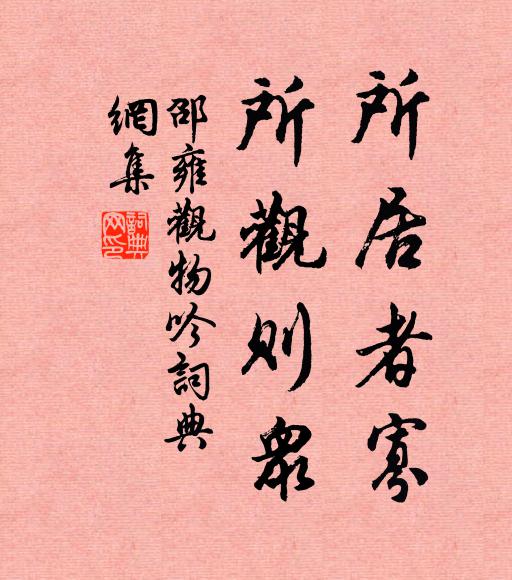 所居者寡
所觀則眾
邵雍觀物吟詞典
網集
詞典
网印